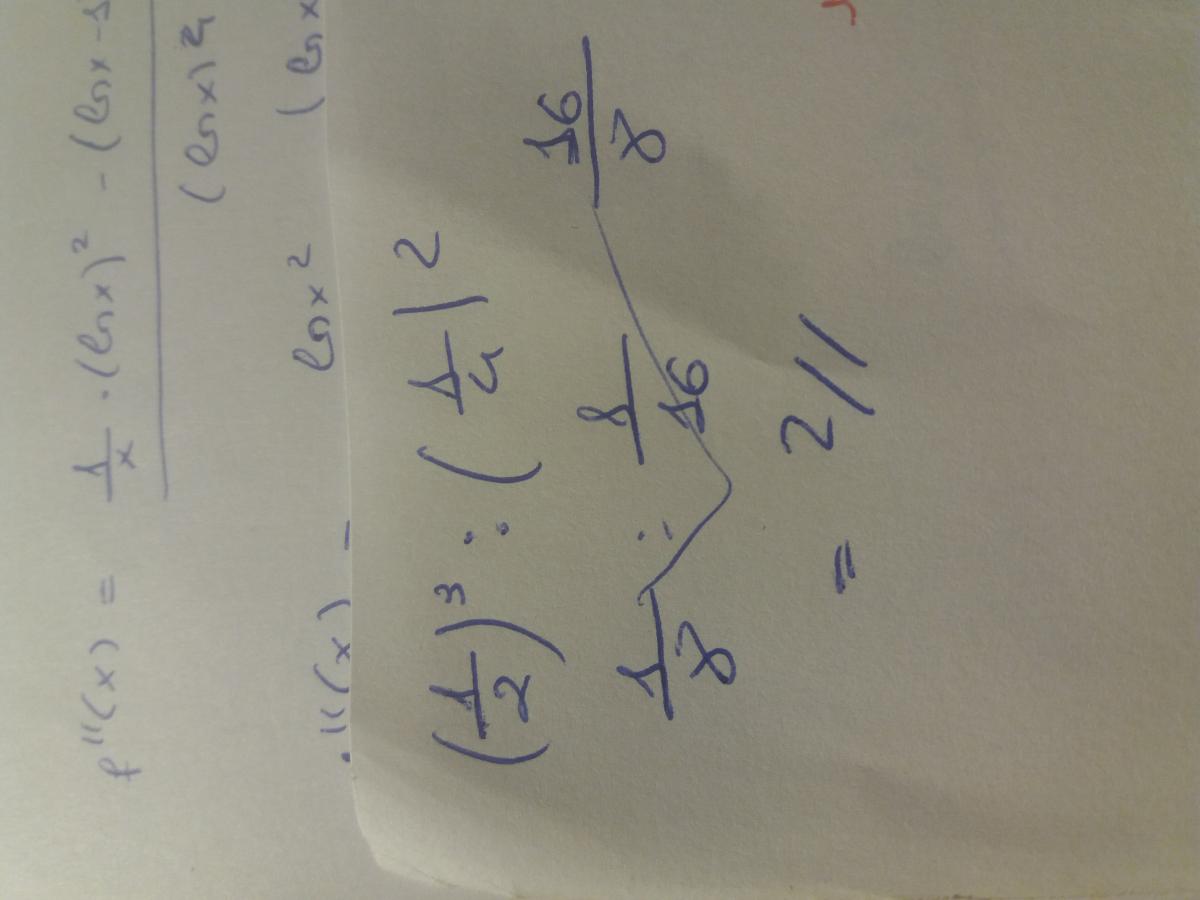 f''(x) = 1/x · (lnx)² - (lnx -
(lnx)4
''(x) - lnx² (lnx
(1/2)³ : (1/4)² 16/8
1/8 : 1/16
= 2//